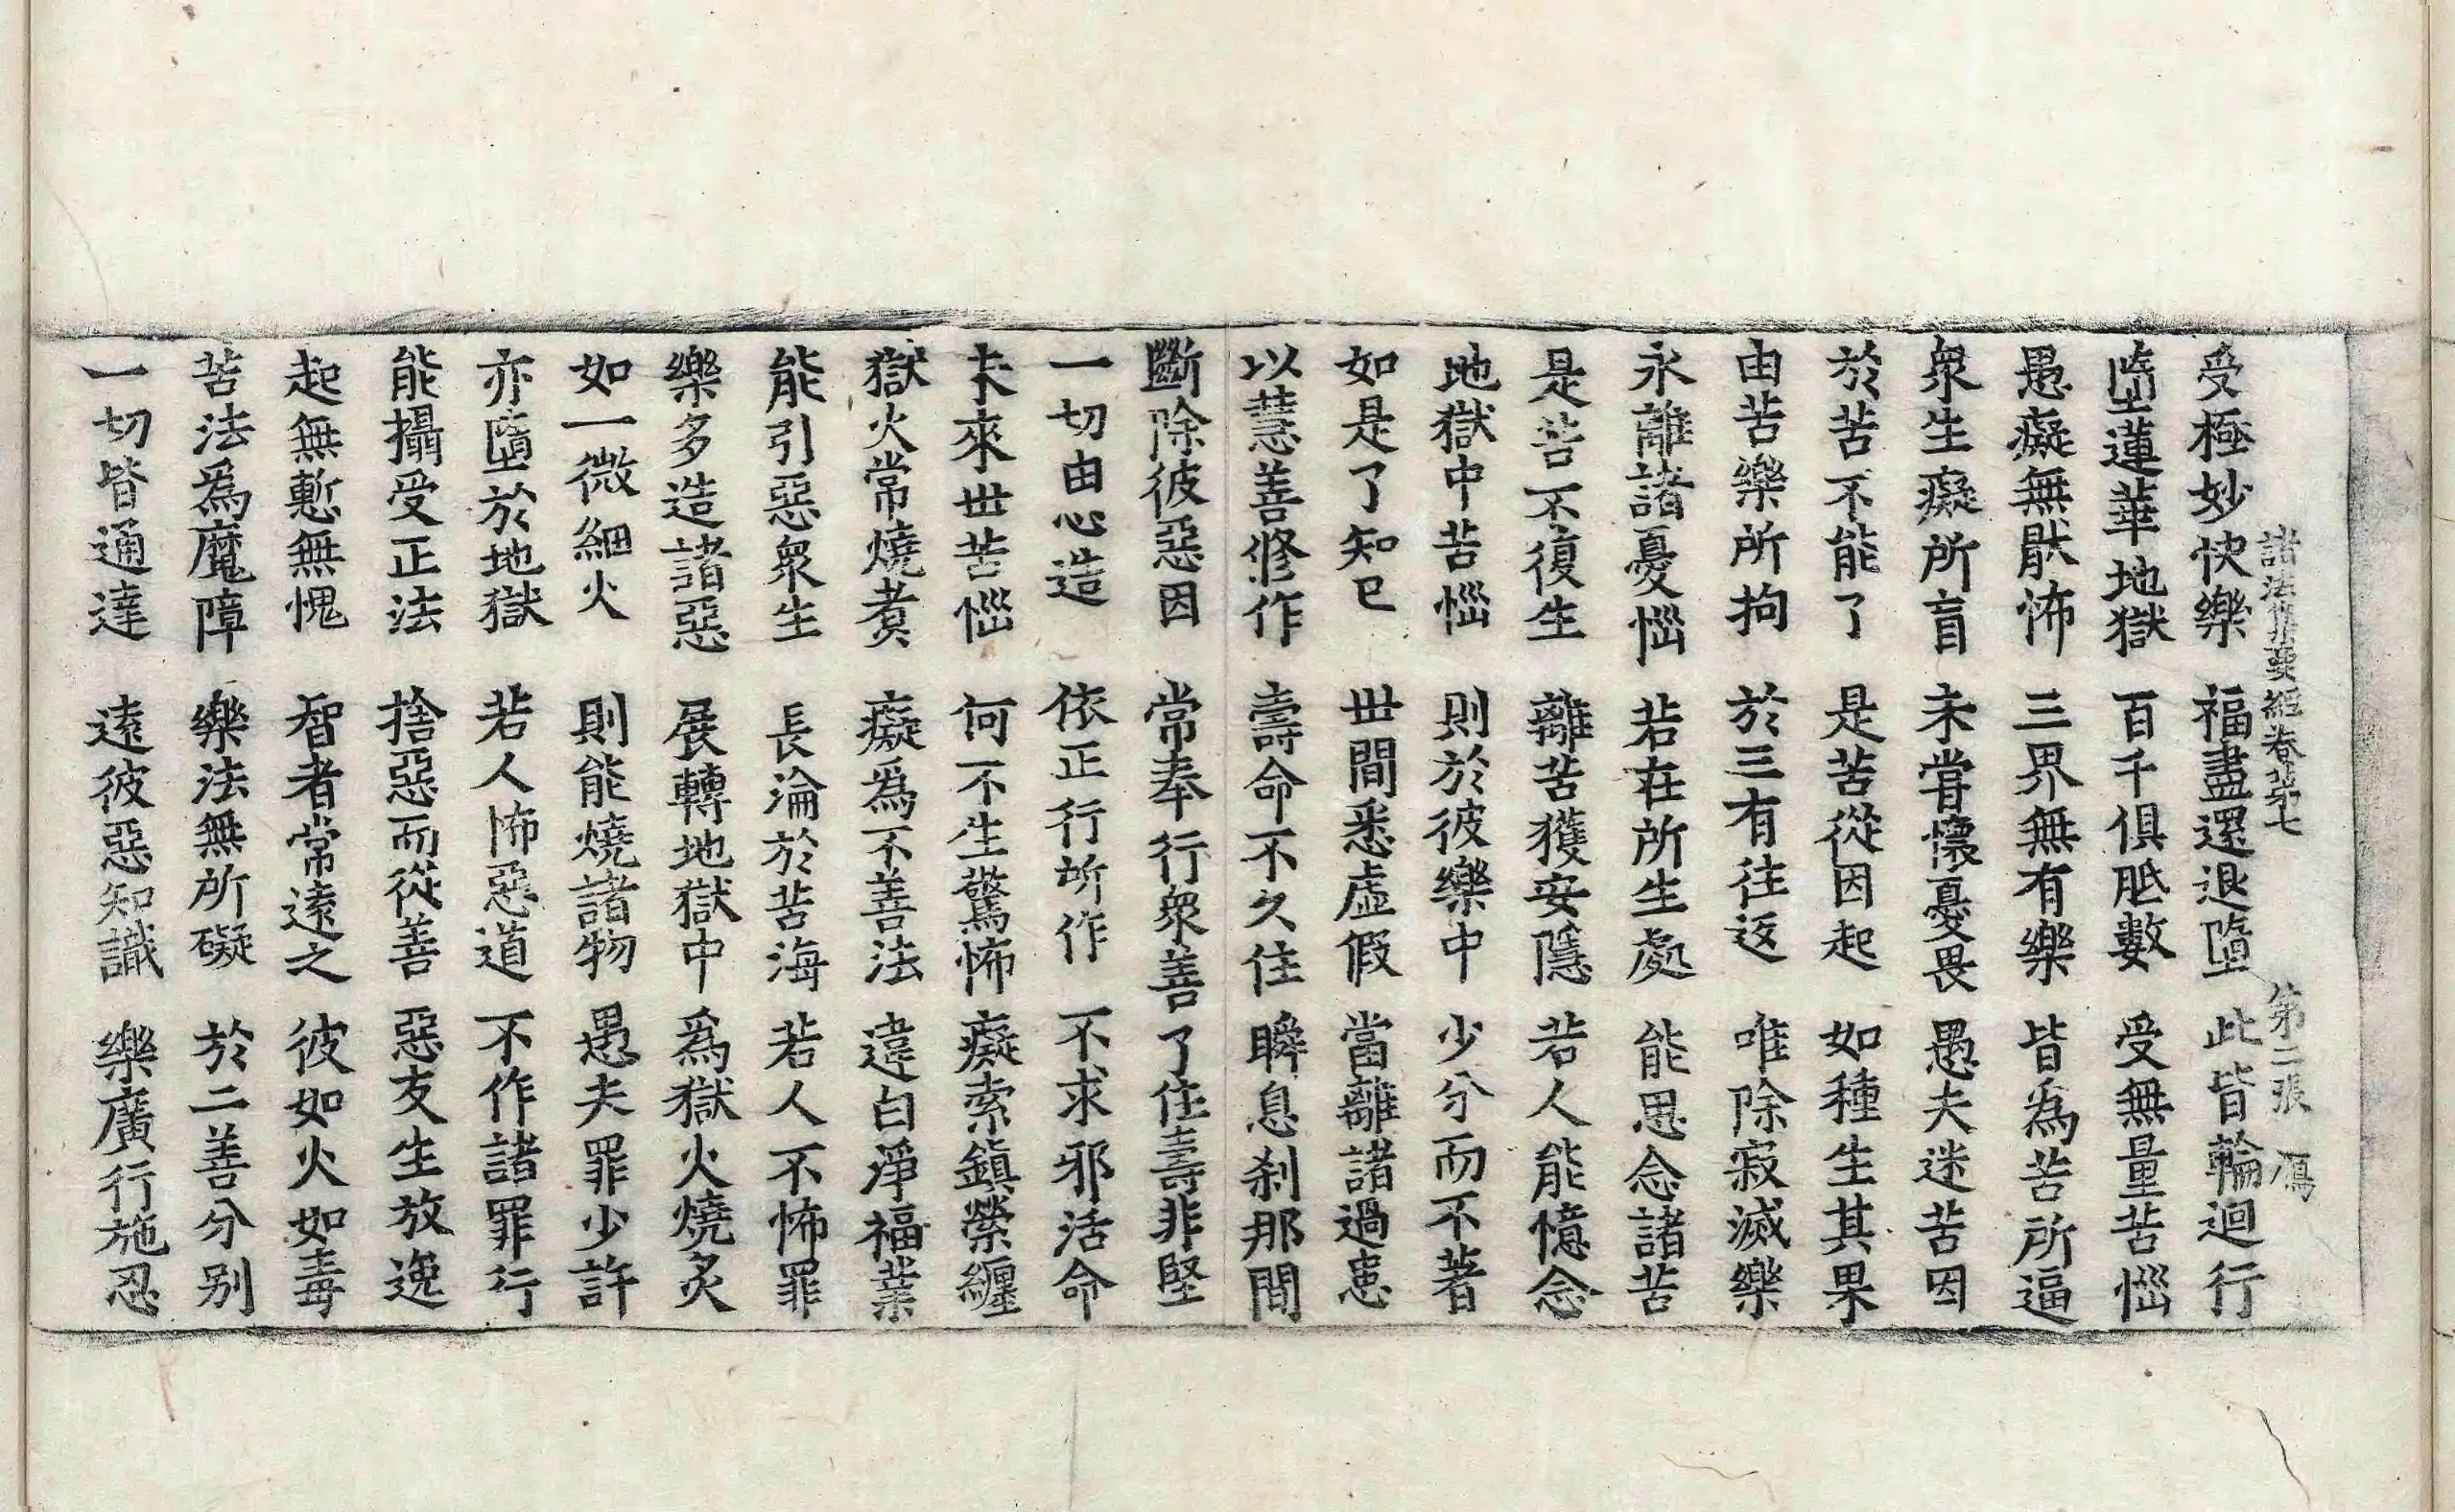 諸法集要經卷第七 第二張 鴈
受極妙快樂 福盡還退墮 此皆輪迴行
墮蓮華地獄 百千俱胝數 受無量苦惱
愚癡無厭怖 三界無有樂 皆為苦所逼
衆生癡所盲 未甞懷憂畏 愚夫迷苦因
於苦不能了 是苦從因起 如種生其果
由苦樂所拘 於三有往返 唯除寂滅樂
永離諸憂惱 若在所生處 能思念諸苦
是苦不復生 離苦獲安隱 若人能憶念
地獄中苦惱 則於彼樂中 少分而不著
如是了知已 世間悉虛假 當離諸過患
以慧善修作 壽命不久住 瞬息刹那間
斷除彼惡因 常奉行衆善 了住壽非堅
一切由心造 依正行所作 不求邪活命
未來世苦惱 何不生驚怖 癡索鎮縈纏
獄火常燒煑 癡爲不善法 違白淨福業
能引惡衆生 長淪於苦海 若人不怖罪
樂多造諸惡 展轉地獄中 爲獄火燒炙
如一微細火 則能燒諸物 愚夫罪少許
亦墮於地獄 若人怖惡道 不作諸罪行
能攝受正法 捨惡而從善 惡友生放逸
起無慙無愧 智者常遠之 彼如火如毒
苦法爲魔障 樂法無所礙 於二善分别
一切皆通達 遠彼惡知識 樂廣行施忍